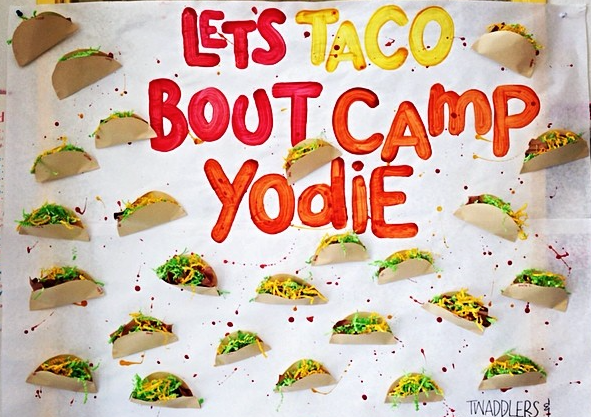 LET'S TACO
BOUT CAMP
YodiE
TWADDLERS &